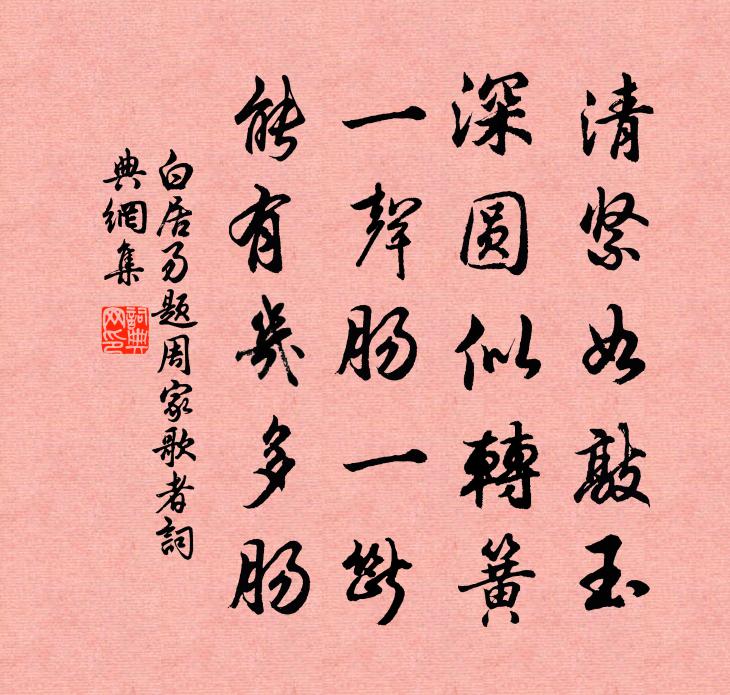 清紧如敲玉
深圓似轉簧
一聲肠一斷
能有幾多肠
白居易题周家歌者詞
典網集
詞典
网印